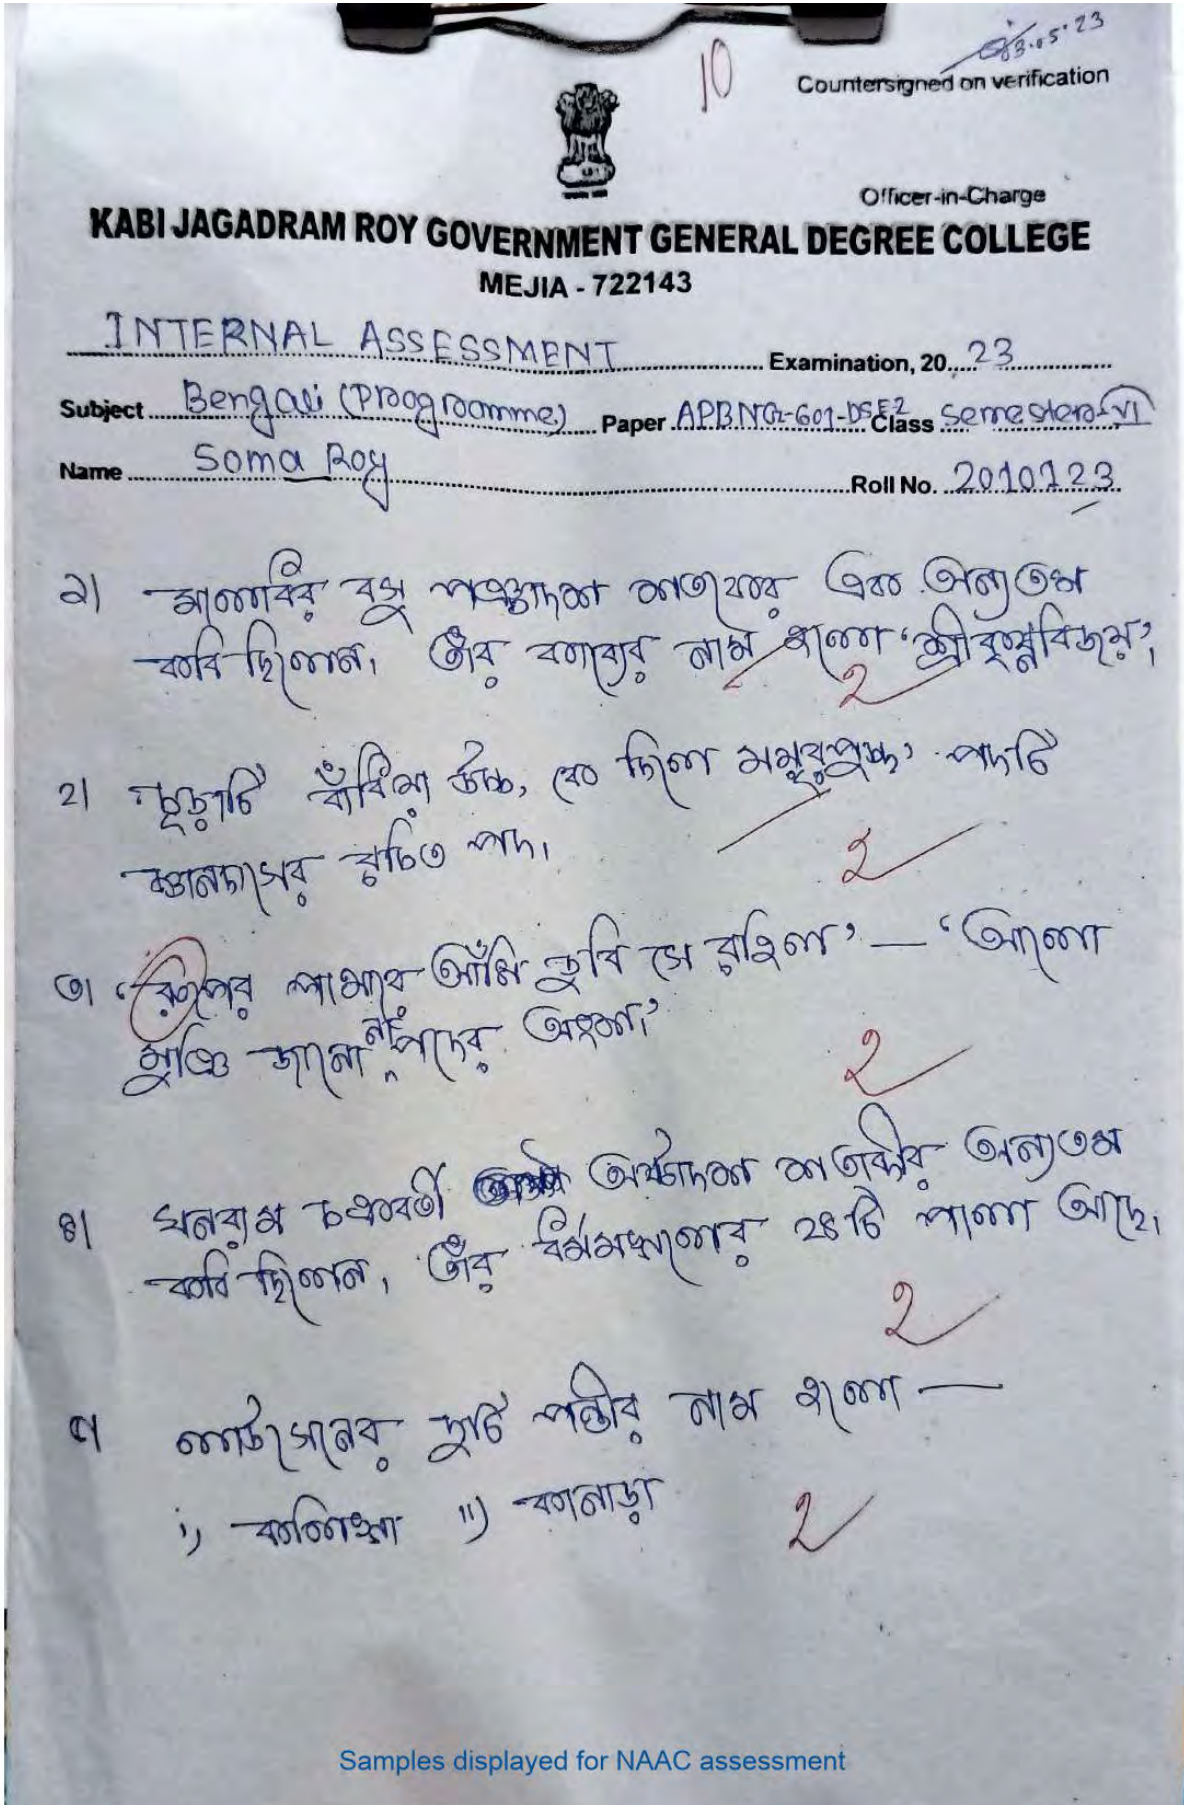 03.05.23
10
Countersigned on verification
Officer-in-Charge
KABI JAGADRAM ROY GOVERNMENT GENERAL DEGREE COLLEGE
MEJIA - 722143
INTERNAL ASSESSMENT Examination, 2023
Subject Bengali (Programme) Paper APBNG-601-DSE2 Class Semester-VI
Name Soma Roy Roll No. 2010123
১। মালাধর বসু পঞ্চদশ শতকের এক অন্যতম
কবি ছিলেন। তাঁর কাব্যের নাম হলো 'শ্রীকৃষ্ণবিজয়'।
২
২। 'চূড়াটি বাঁধিয়া উচ্চ, কে দিল ময়ূরপুচ্ছ' পদটি
জ্ঞানদাসের রচিত পদ।
২
৩। 'রূপের পাথারে আঁখি ডুবি সে রহিল' — 'আলো
মুঞি জানো না' পদের অংশ।
২
৪। ঘনরাম চক্রবর্তী অষ্টাদশ শতাব্দীর অন্যতম
কবি ছিলেন। তাঁর ধর্মমঙ্গলের ২৪টি পালা আছে।
২
৫। লাউসেনের দুটি পত্নীর নাম হলো —
i) কলিঙ্গা ii) কানাড়া
২
Samples displayed for NAAC assessment